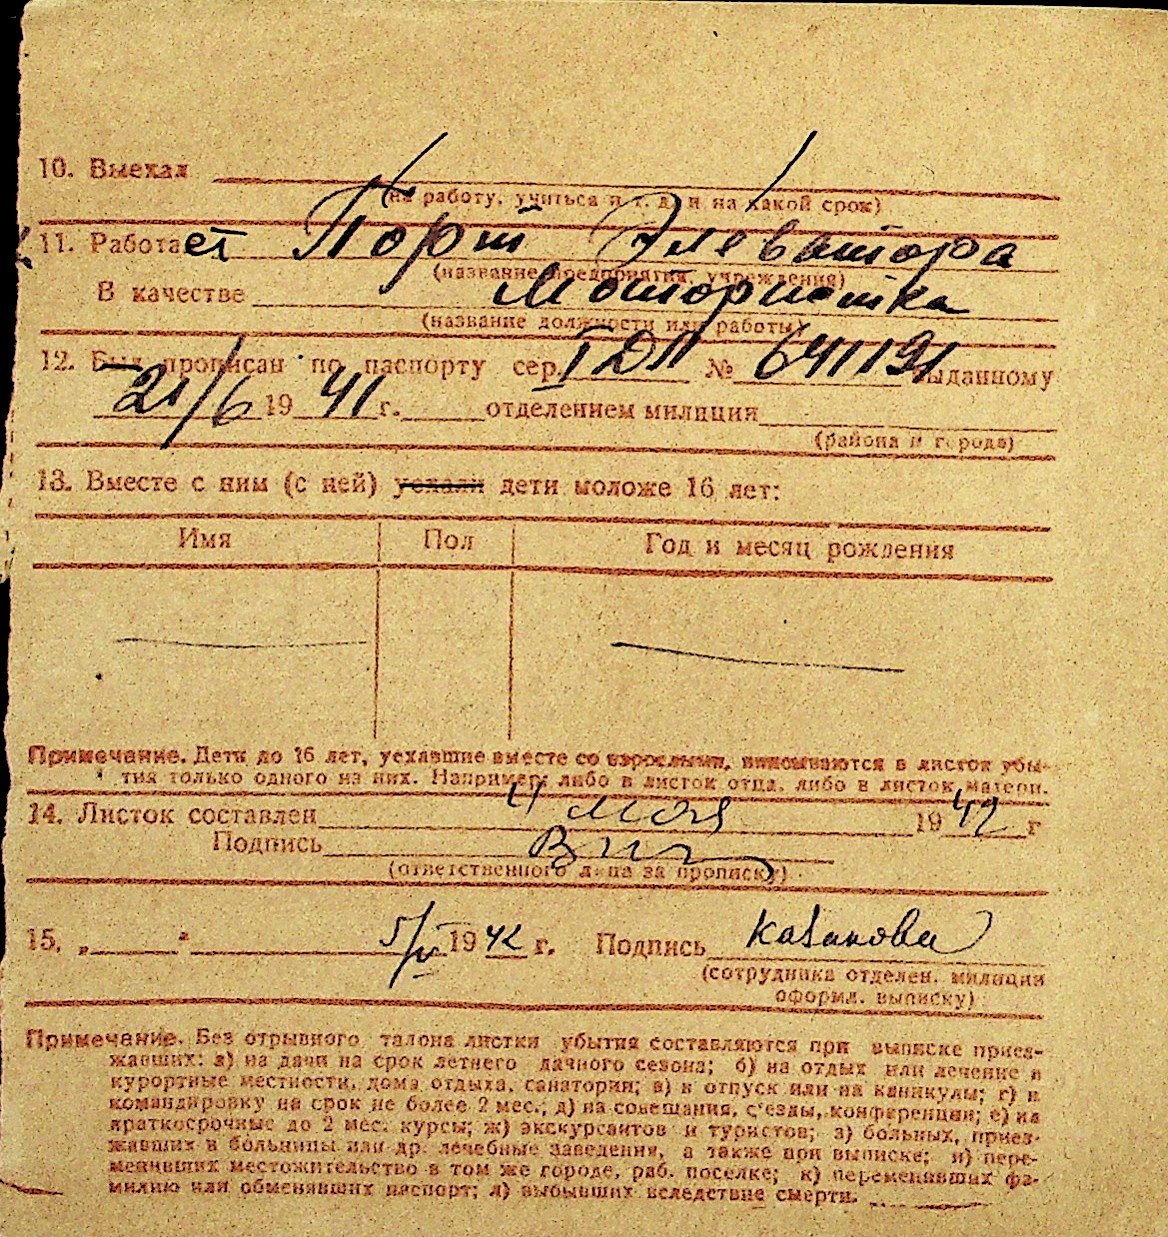 10. Выехал
(на работу, учиться и т. д. и на какой срок)
11. Работает Порт Элеватора
(название предприятия, учреждения)
В качестве Мотористка
(название должности или работы)
12. Был прописан по паспорту сер. № 641191 выданному
21/6 1941 г. отделением милиции
(района и города)
13. Вместе с ним (с ней) уехали дети моложе 16 лет:
Имя Пол Год и месяц рождения
Примечание. Дети до 16 лет, уехавшие вместе со взрослыми, вписываются в листок убы-
тия только одного из них. Например: либо в листок отца, либо в листок матери.
14. Листок составлен 4 мая 1942 г
Подпись
(ответственного лица за прописку)
15. „ “ 5/V 1942 г. Подпись
(сотрудника отделен. милиции
оформл. выписку)
Примечание. Без отрывного талона листки убытия составляются при выписке приез-
жавших: а) на дачи на срок летнего дачного сезона; б) на отдых или лечение в
курортные местности, дома отдыха, санатории; в) в отпуск или на каникулы; г) в
командировку на срок не более 2 мес.; д) на совещания, с'езды, конференции; е) на
краткосрочные до 2 мес. курсы; ж) экскурсантов и туристов; з) больных, приез-
жавших в больницы или др. лечебные заведения, а также при выписке; и) пере-
менивших местожительство в том же городе, раб. поселке; к) переменивших фа-
милию или обменявших паспорт; л) выбывших вследствие смерти.